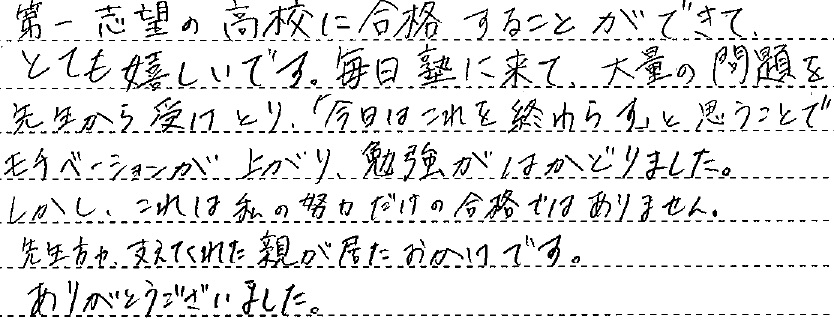 第一志望の高校に合格することができて、
とても嬉しいです。毎日塾に来て、大量の問題を
先生から受けとり、「今日はこれを終わらす」と思うことで
モチベーションが上がり、勉強がはかどりました。
しかし、これは私の努力だけの合格ではありません。
先生方や、支えてくれた親が居たおかげです。
ありがとうございました。